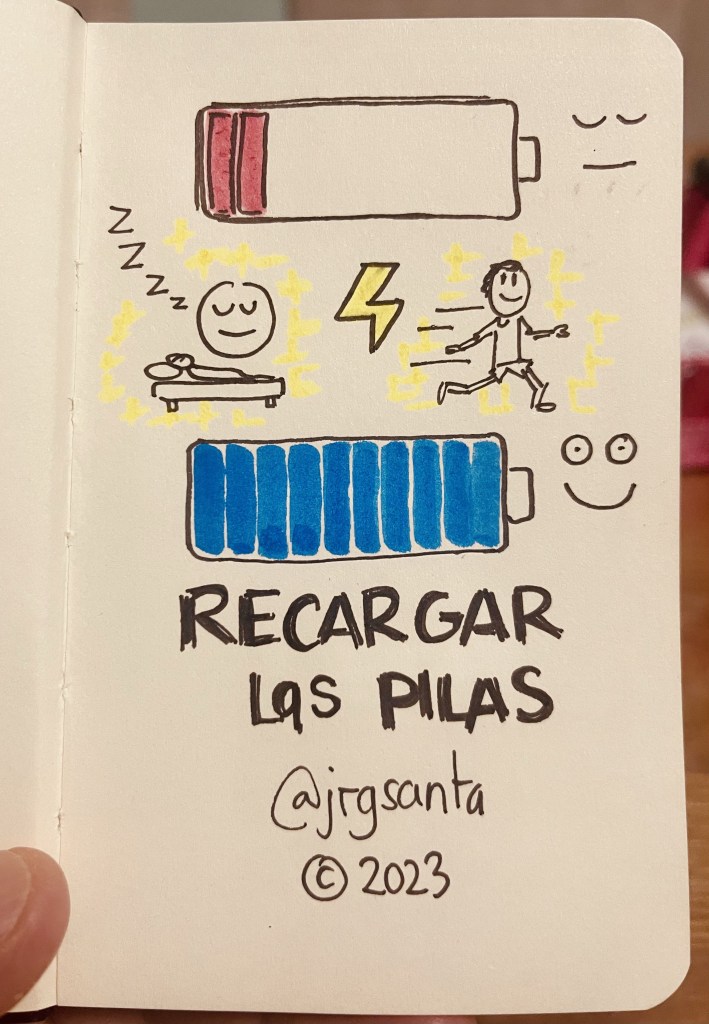 Z
Z
Z
Z
RECARGAR
Las PILAS
@jrgsanta
© 2023